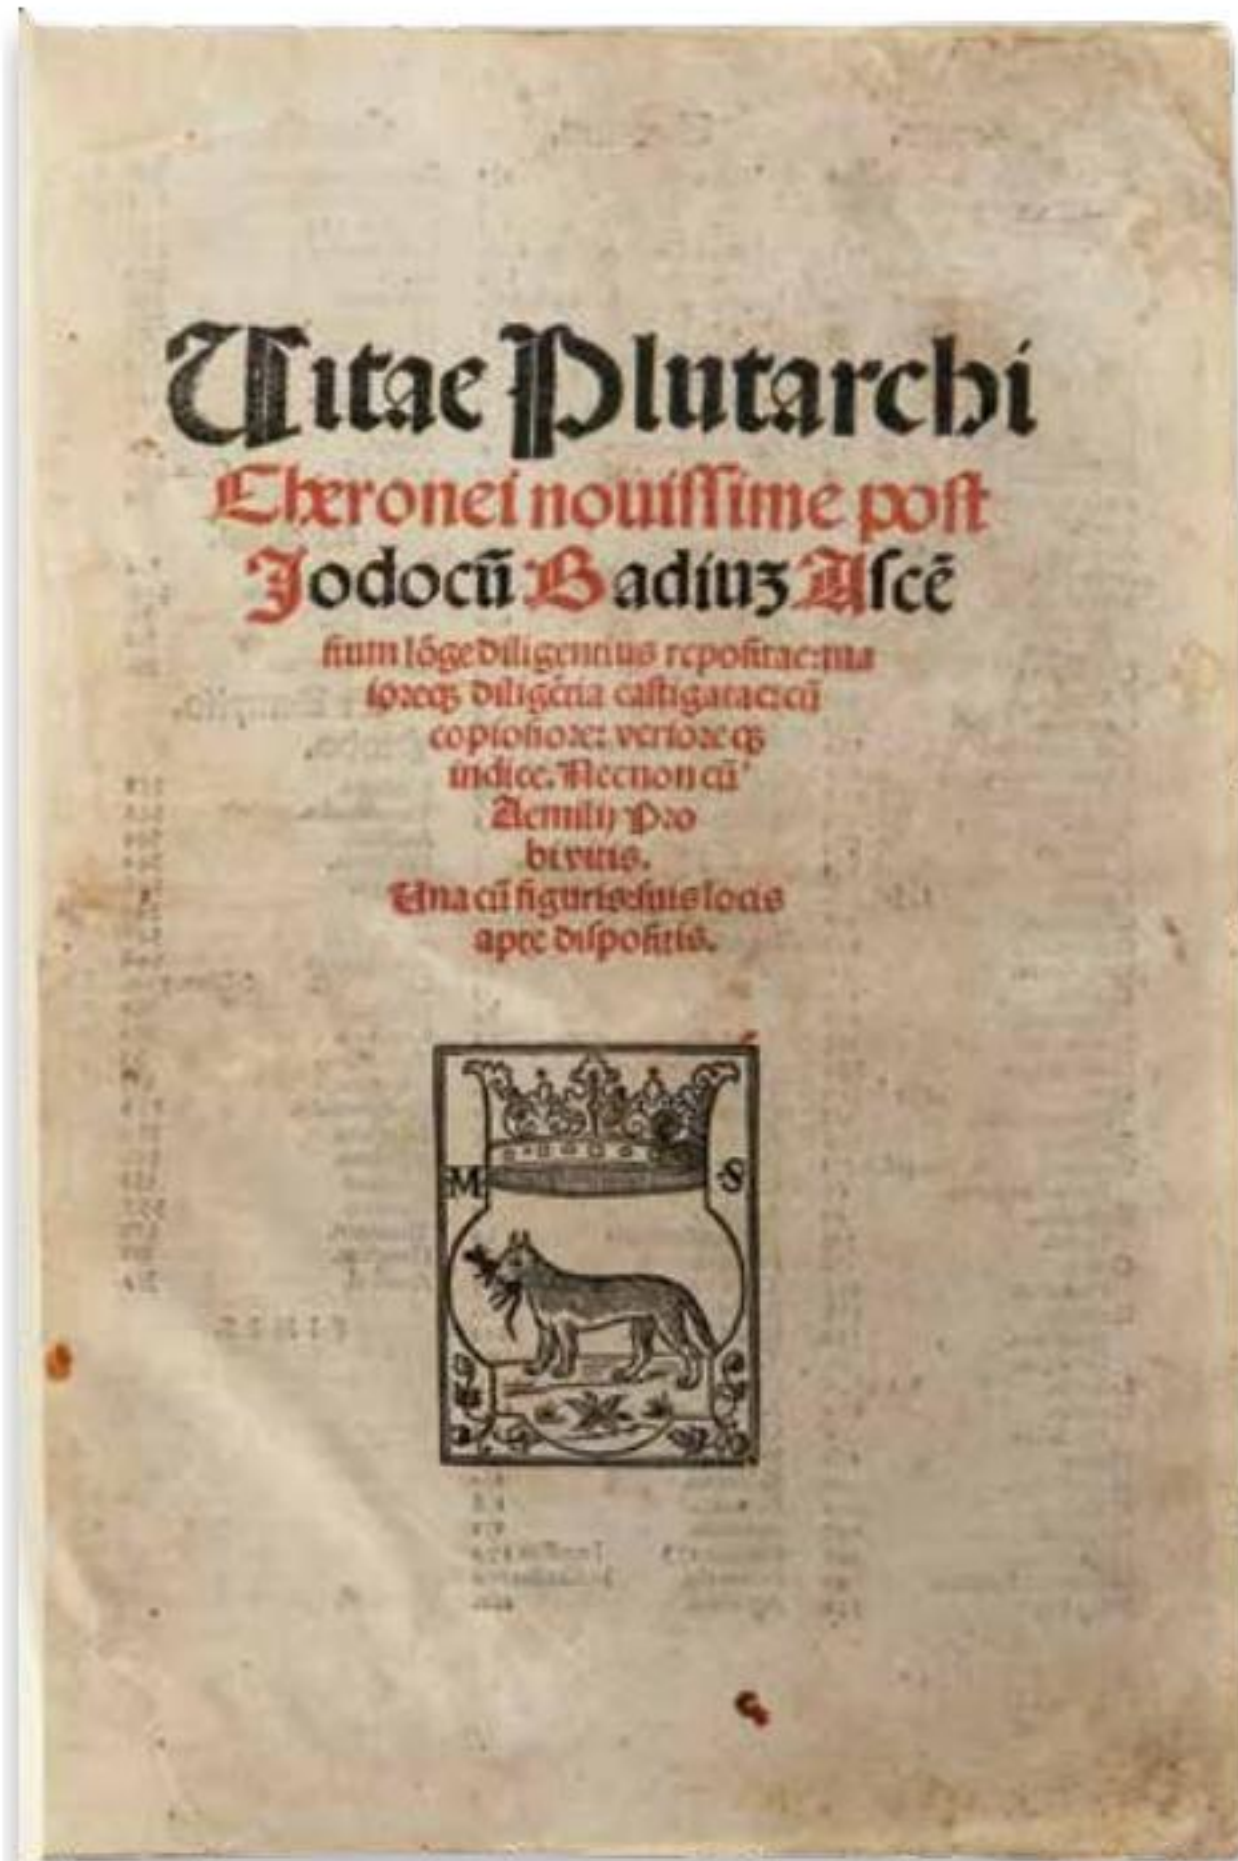 Vitae Plutarchi
Cheronei nouissime post
Jodocū Badiuȝ Ascē
sium lōge diligentius repositae: ma
ioreqȝ diligētia castigatae: cū
copiosiore: verioreqȝ
indice. Necnon cū
Aemilij Pro
bi vitis.
Una cū figuris: suis locis
apte dispositis.
M S
FINIS